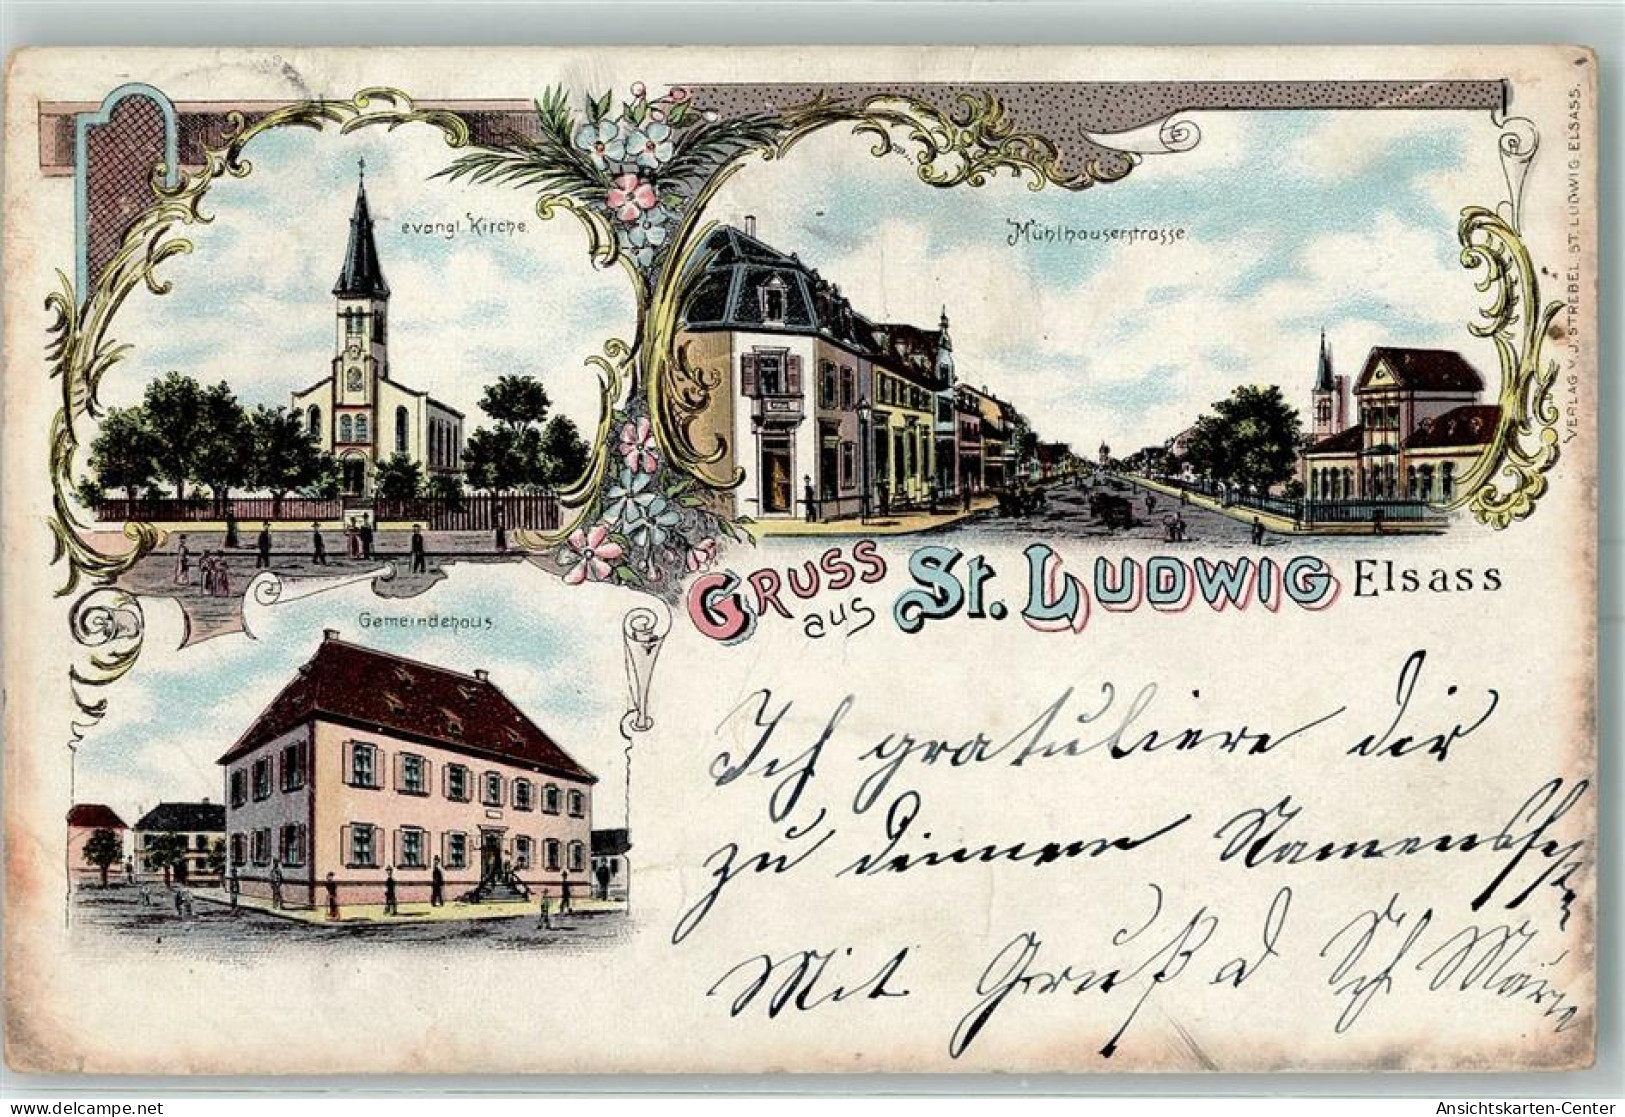 evangl. Kirche.
Mühlhauserstrasse.
VERLAG V. J. STREBEL ST. LUDWIG ELSASS.
GRUSS aus St. LUDWIG Elsass
Gemeindehaus.
Ich gratuliere dir
zu deinem Namensfest
Mit Gruß d
Ansichtskarten-Center